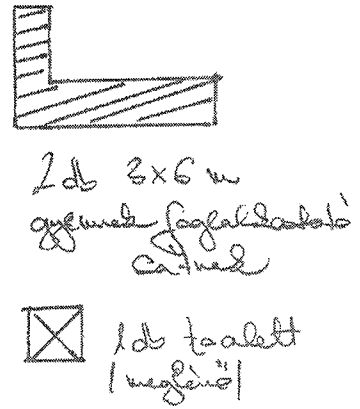 2 db 3x6 m
gyermek foglalkoztató
sátrak
1 db toalett
(meglévő)